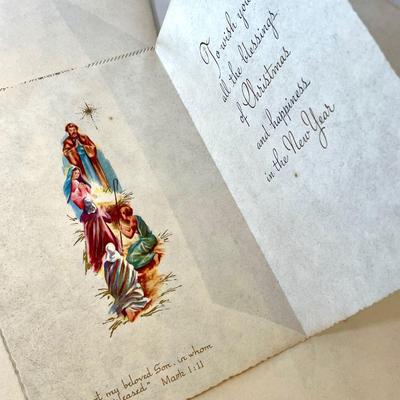 To wish you
all the blessings
of Christmas
and happiness
in the New Year
my beloved Son, in whom
pleased" Mark 1:11